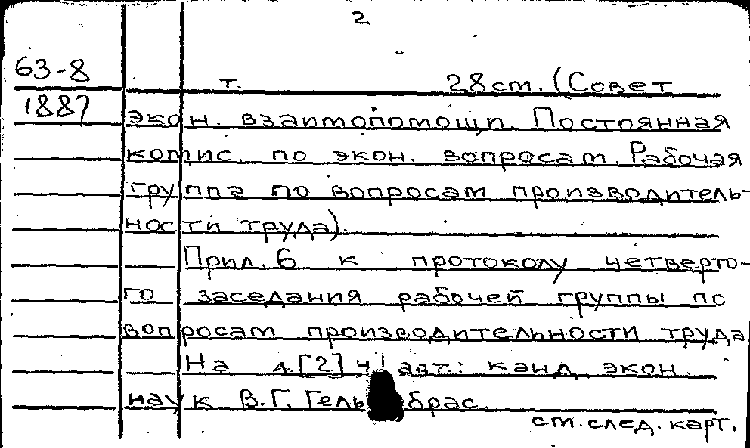 2
63-8
т. 28 см. (Совет
1887
экон. взаимопомощи. Постоянная
комис. по экон. вопросам. Рабочая
группа по вопросам производитель-
ности труда).
Прил. 6 к протоколу четверто-
го заседания рабочей группы по
вопросам производительности труда
На 4.[2] авт.: канд. экон.
наук В.Г. Гель брас.
см. след. карт.